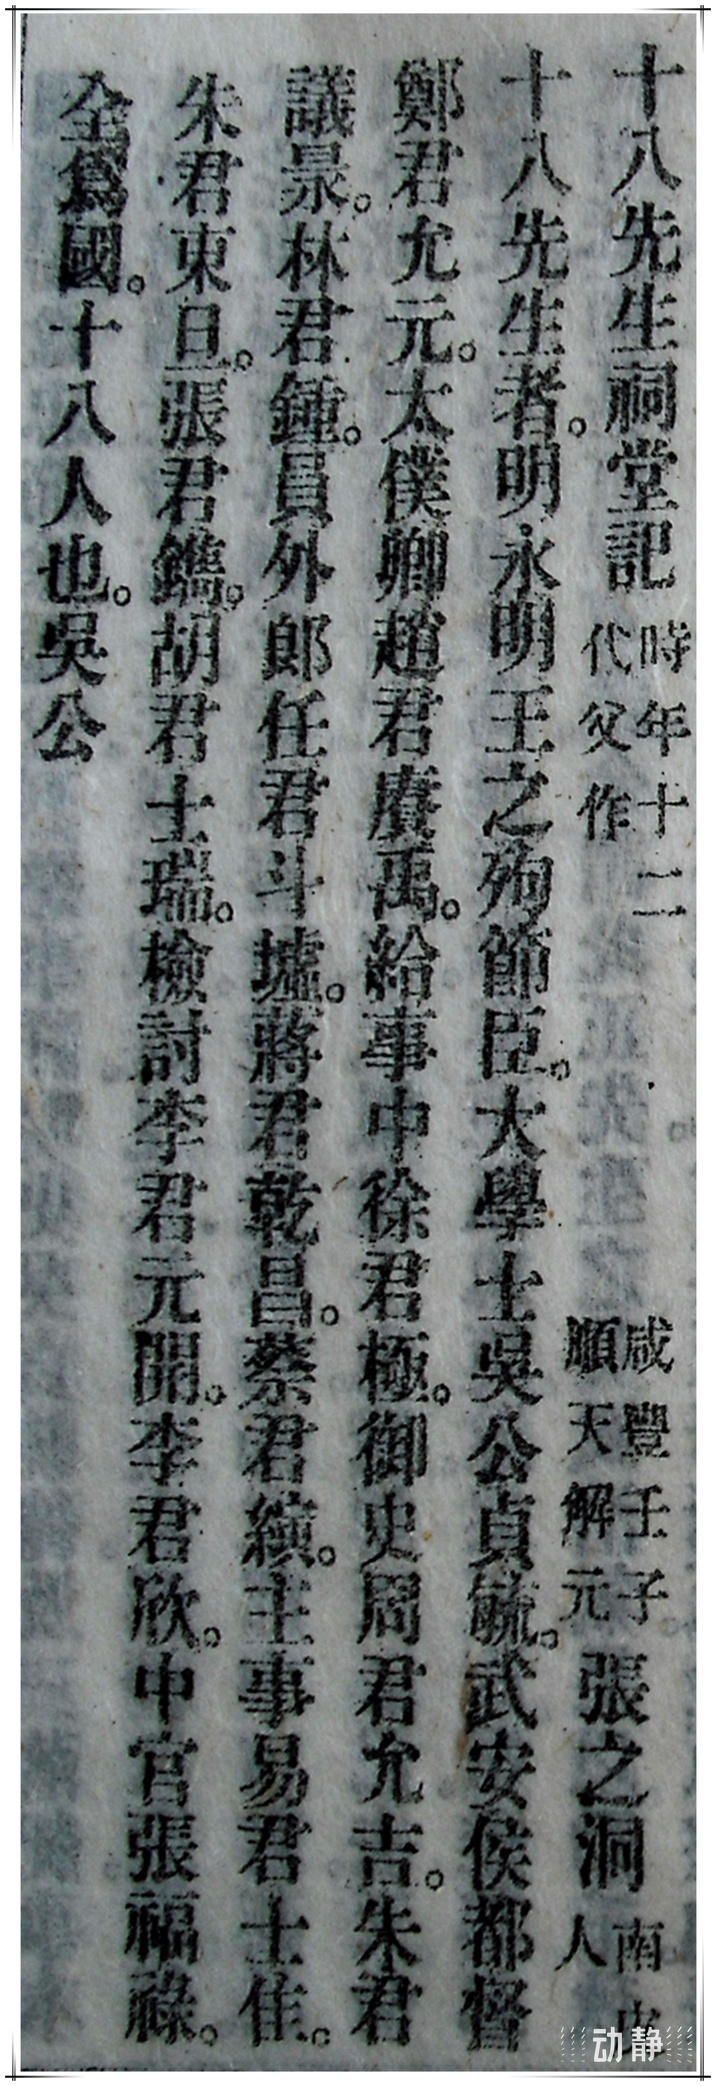 十八先生祠堂記 時年十二代父作 咸豐壬子順天解元 張之洞 南皮人
十八先生者。明永明王之殉節臣。大學士吳公貞毓。武安侯都督
鄭君允元。太僕卿趙君賡禹。給事中徐君極。御史周君允吉。朱君
議㫤。林君鍾。員外郎任君斗墟。蔣君乾昌。蔡君縯。主事易君士佳。
朱君東旦。張君鐫。胡君士瑞。檢討李君元開。李君欣。中官張福祿。
全爲國。十八人也。吳公
动静